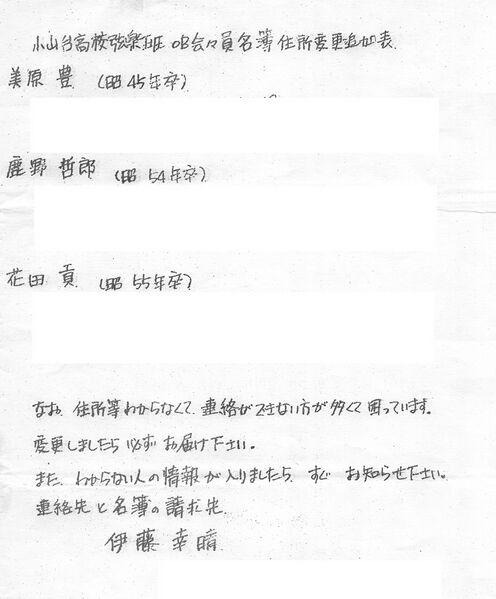 小山台高校弦楽班 OB会々員名簿 住所変更追加表
美原 豊 (昭45年卒)
鹿野 哲郎 (昭 54年卒)
花田 貢 (昭 55年卒)
なお、住所等わからなくて、連絡ができない方が多くて 困っています。
変更しましたら 必ず お届け下さい。
また、わからない人の情報が入りましたら、すぐ お知らせ下さい。
連絡先と名簿の請求先
伊藤 幸晴